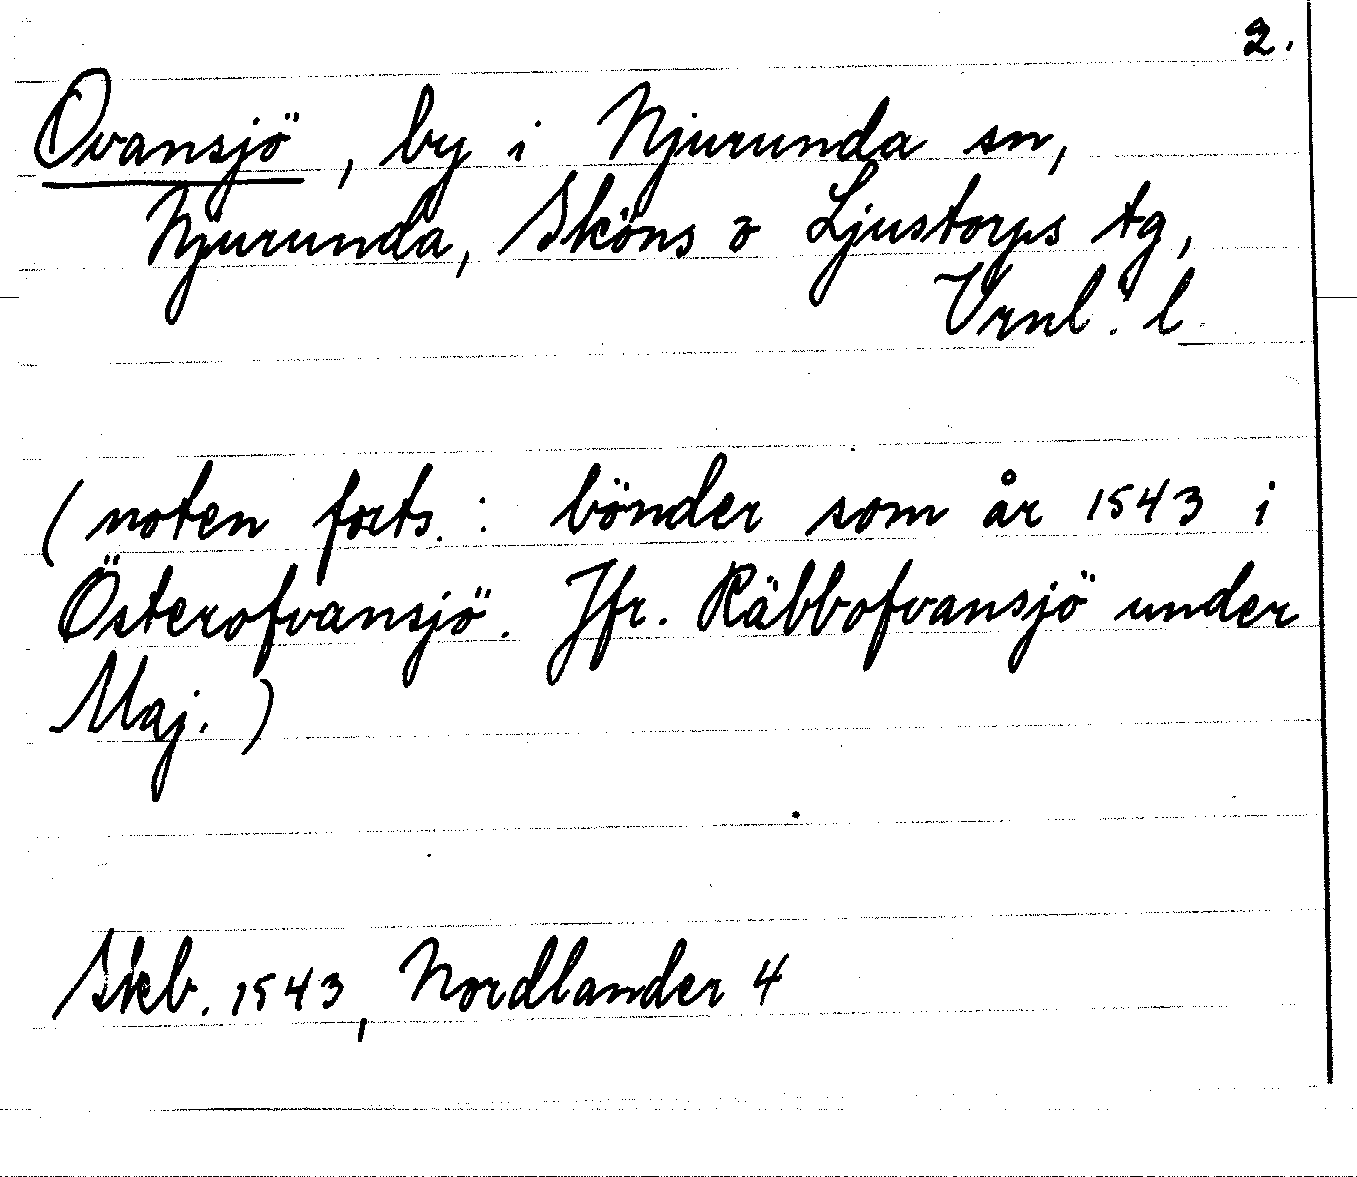 2.
Ovansjö, by i Njurunda sn,
Njurunda, Sköns o Ljustorps tg,
Vrnl. l.
(noten forts. : bönder som år 1543 i
Österofvansjö. Jfr. Räbbofvansjö under
Maj.)
Skb. 1543, Nordlander 4